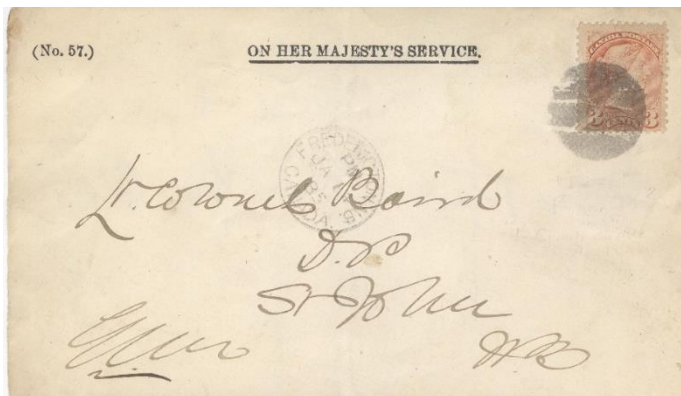 (No. 57.)
ON HER MAJESTY'S SERVICE.
CANADA POSTAGE
3 CENTS 3
FREDERICTON N.B.
PM
JA
85
CANADA
Lt. Colonel Baird
D.P
St John
N.B